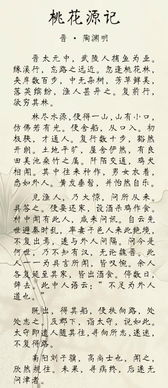 桃花源记
晋·陶渊明
晋太元中，武陵人捕鱼为业。
缘溪行，忘路之远近。忽逢桃花林，
夹岸数百步，中无杂树，芳草鲜美，
落英缤纷，渔人甚异之。复前行，
欲穷其林。
林尽水源，便得一山，山有小口，
仿佛若有光。便舍船，从口入。初
极狭，才通人。复行数十步，豁然
开朗。土地平旷，屋舍俨然，有良
田美池桑竹之属。阡陌交通，鸡犬
相闻。其中往来种作，男女衣着，
悉如外人。黄发垂髫，并怡然自乐。
见渔人，乃大惊，问所从来。
具答之。便要还家，设酒杀鸡作食。
村中闻有此人，咸来问讯。自云先
世避秦时乱，率妻子邑人来此绝境，
不复出焉，遂与外人间隔。问今是
何世，乃不知有汉，无论魏晋。此
人一一为具言所闻，皆叹惋。余人
各复延至其家，皆出酒食。停数日，
辞去。此中人语云：“不足为外人
道也。”
既出，得其船，便扶向路，处
处志之。及郡下，诣太守，说如此。
太守即遣人随其往，寻向所志，遂迷，
不复得路。
南阳刘子骥，高尚士也，闻之，
欣然规往。未果，寻病终，后遂无
问津者。